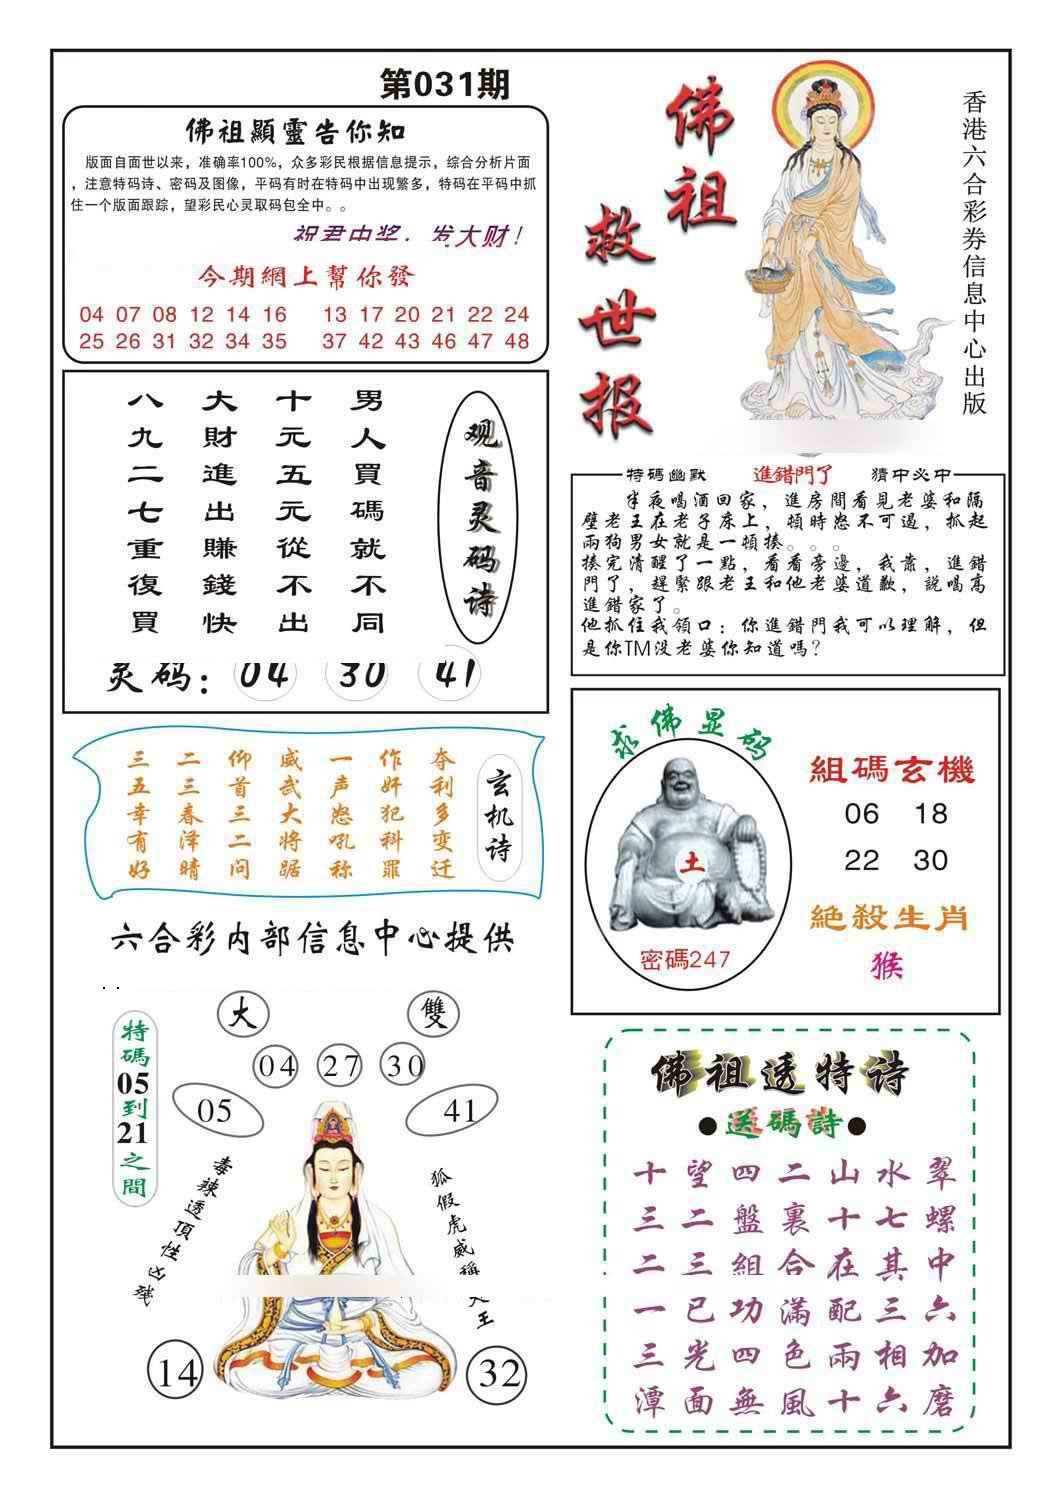 第031期
佛祖顯靈告你知
版面自面世以来，准确率100%，众多彩民根据信息提示，综合分析片面
，注意特码诗、密码及图像，平码有时在特码中出现繁多，特码在平码中抓
住一个版面跟踪，望彩民心灵取码包全中。。
祝君中奖，发大财！
今期網上幫你發
04 07 08 12 14 16 13 17 20 21 22 24
25 26 31 32 34 35 37 42 43 46 47 48
佛祖
救世报
香港六合彩券信息中心出版
观音灵码诗
男人買碼就不同
十元五元從不出
大財進出賺錢快
八九二七重復買
灵码：04 30 41
特碼幽默 進錯門了 猜中必中
半夜喝酒回家，進房間看見老婆和隔
壁老王在老子床上，頓時怒不可遏，抓起
兩狗男女就是一頓揍。。。
揍完清醒了一點，看看旁邊，我靠，進錯
門了，趕緊跟老王和他老婆道歉，説喝高
進錯家了。
他抓住我領口：你進錯門我可以理解，但
是你TM没老婆你知道嗎？
玄机诗
夺利多变迁
作奸犯科罪
一声怒吼称
威武大将踞
仰首三二问
二三春泽晴
三五幸有好
求佛显码
土
密碼247
組碼玄機
06 18
22 30
絶殺生肖
猴
六合彩内部信息中心提供
大 雙
04 27 30
05 41
特碼05到21之間
毒辣透頂性凶残
狐假虎威稱大王
14 32
佛祖透特诗
●送碼詩●
十望四二山水翠
三二盤裏十七螺
二三組合在其中
一已功滿配三六
三光四色兩相加
潭面無風十六磨